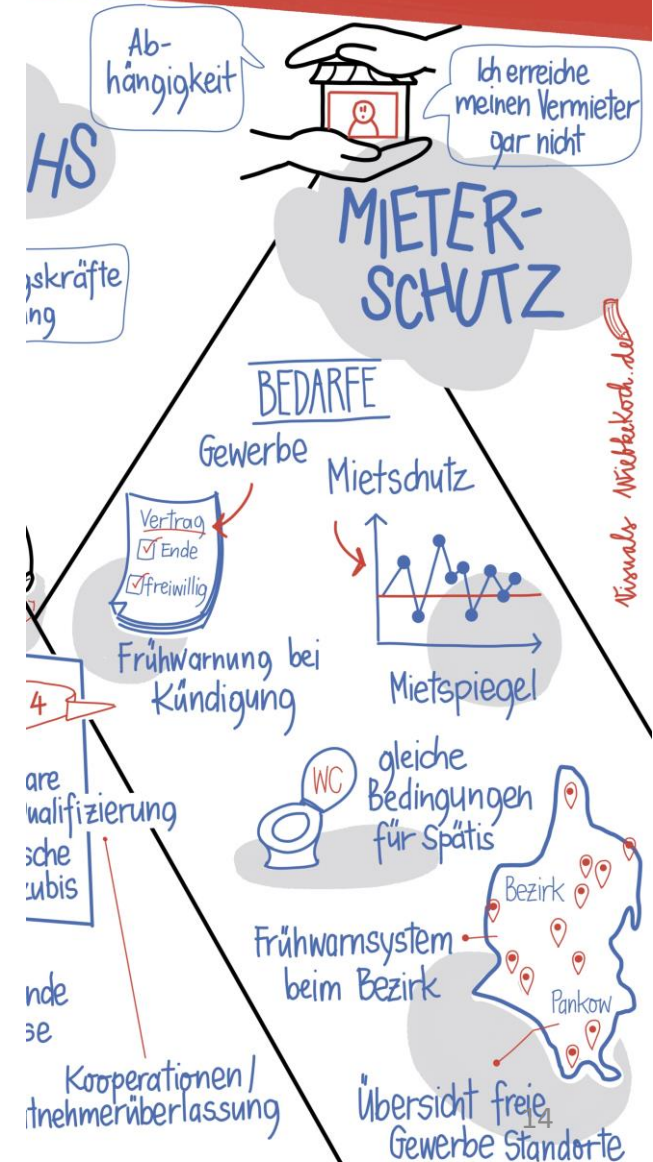 Ab-
hängigkeit
Ich erreiche
meinen Vermieter
gar nicht
HS
MIETER-
SCHUTZ
gskräfte
ng
Visuals WiebkeKoch.de
BEDARFE
Gewerbe
Mietschutz
Vertrag
Ende
freiwillig
Frühwarnung bei
Kündigung
Mietspiegel
4
are
ualifizierung
sche
zubis
WC
gleiche
Bedingungen
für Spätis
Bezirk
Pankow
Frühwarnsystem
beim Bezirk
nde
se
Kooperationen/
itnehmerüberlassung
Übersicht freie
Gewerbe Standorte
14